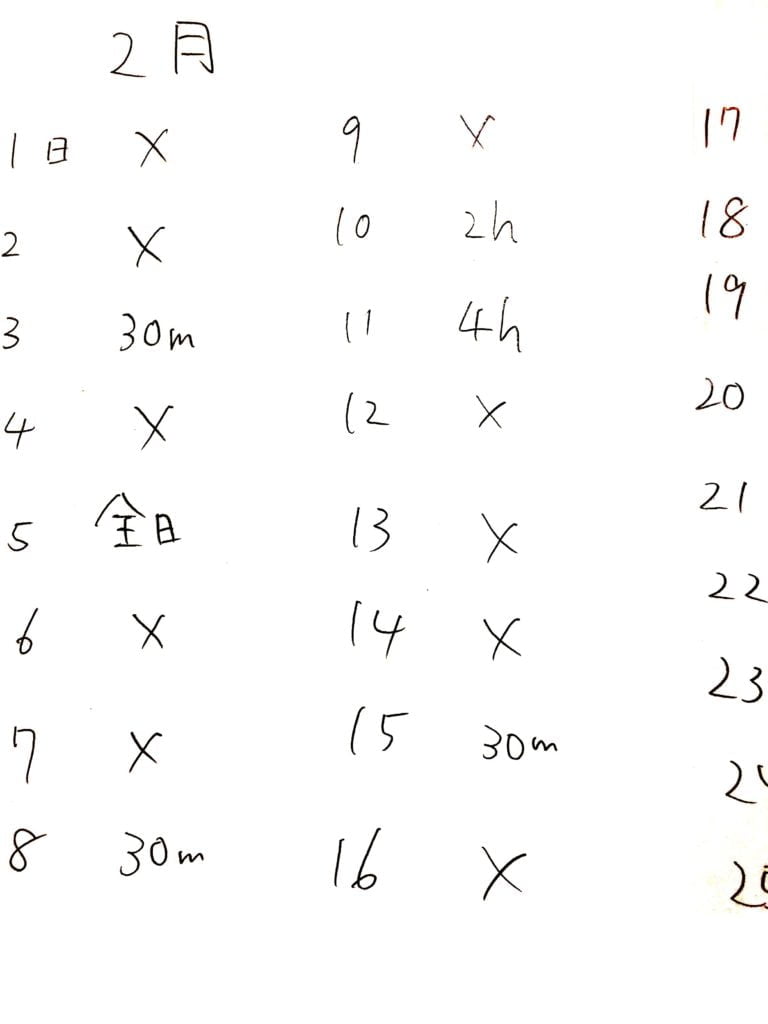 2月
1日 X
2 X
3 30m
4 X
5 全日
6 X
7 X
8 30m
9 X
10 2h
11 4h
12 X
13 X
14 X
15 30m
16 X
17
18
19
20
21
22
23